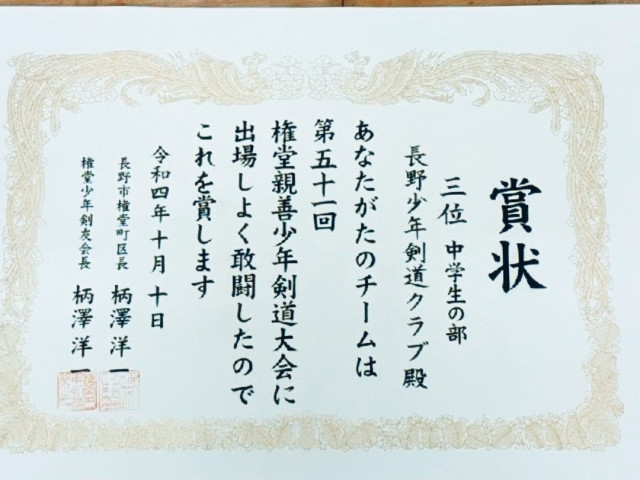 賞状
三位 中学生の部
長野少年剣道クラブ殿
あなたがたのチームは
第五十一回
権堂親善少年剣道大会に
出場しよく敢闘したので
これを賞します
令和四年十月十日
長野市権堂町区長 柄澤洋一
権堂少年剣友会長 柄澤洋一